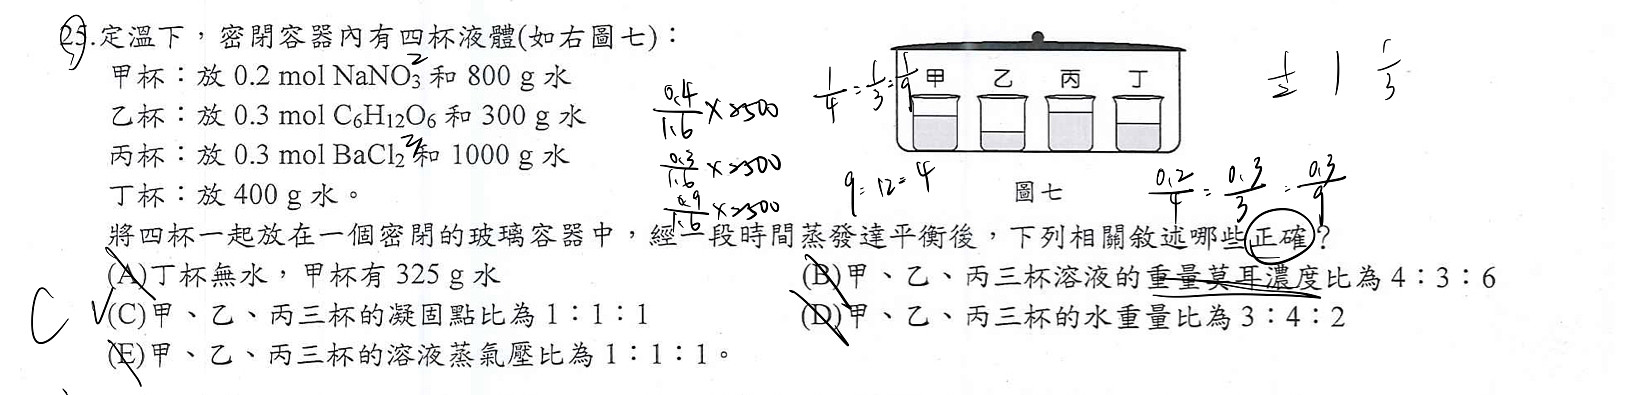 25.定溫下，密閉容器內有四杯液體(如右圖七)：
甲杯：放 0.2 mol NaNO₃ 和 800 g 水
2
乙杯：放 0.3 mol C₆H₁₂O₆ 和 300 g 水
丙杯：放 0.3 mol BaCl₂ 和 1000 g 水
丁杯：放 400 g 水。
0.4/1.6 × 2500
0.3/1.6 × 2500
0.9/1.6 × 2500
1/4 = 1/3 = 1/9
甲 乙 丙 丁
圖七
1/2 1 1/3
9 = 12 = 4
0.2/4 = 0.3/3 = 0.3/9
將四杯一起放在一個密閉的玻璃容器中，經一段時間蒸發達平衡後，下列相關敘述哪些正確？
(A)丁杯無水，甲杯有 325 g 水
(B)甲、乙、丙三杯溶液的重量莫耳濃度比為 4：3：6
C
(C)甲、乙、丙三杯的凝固點比為 1：1：1
(D)甲、乙、丙三杯的水重量比為 3：4：2
(E)甲、乙、丙三杯的溶液蒸氣壓比為 1：1：1。